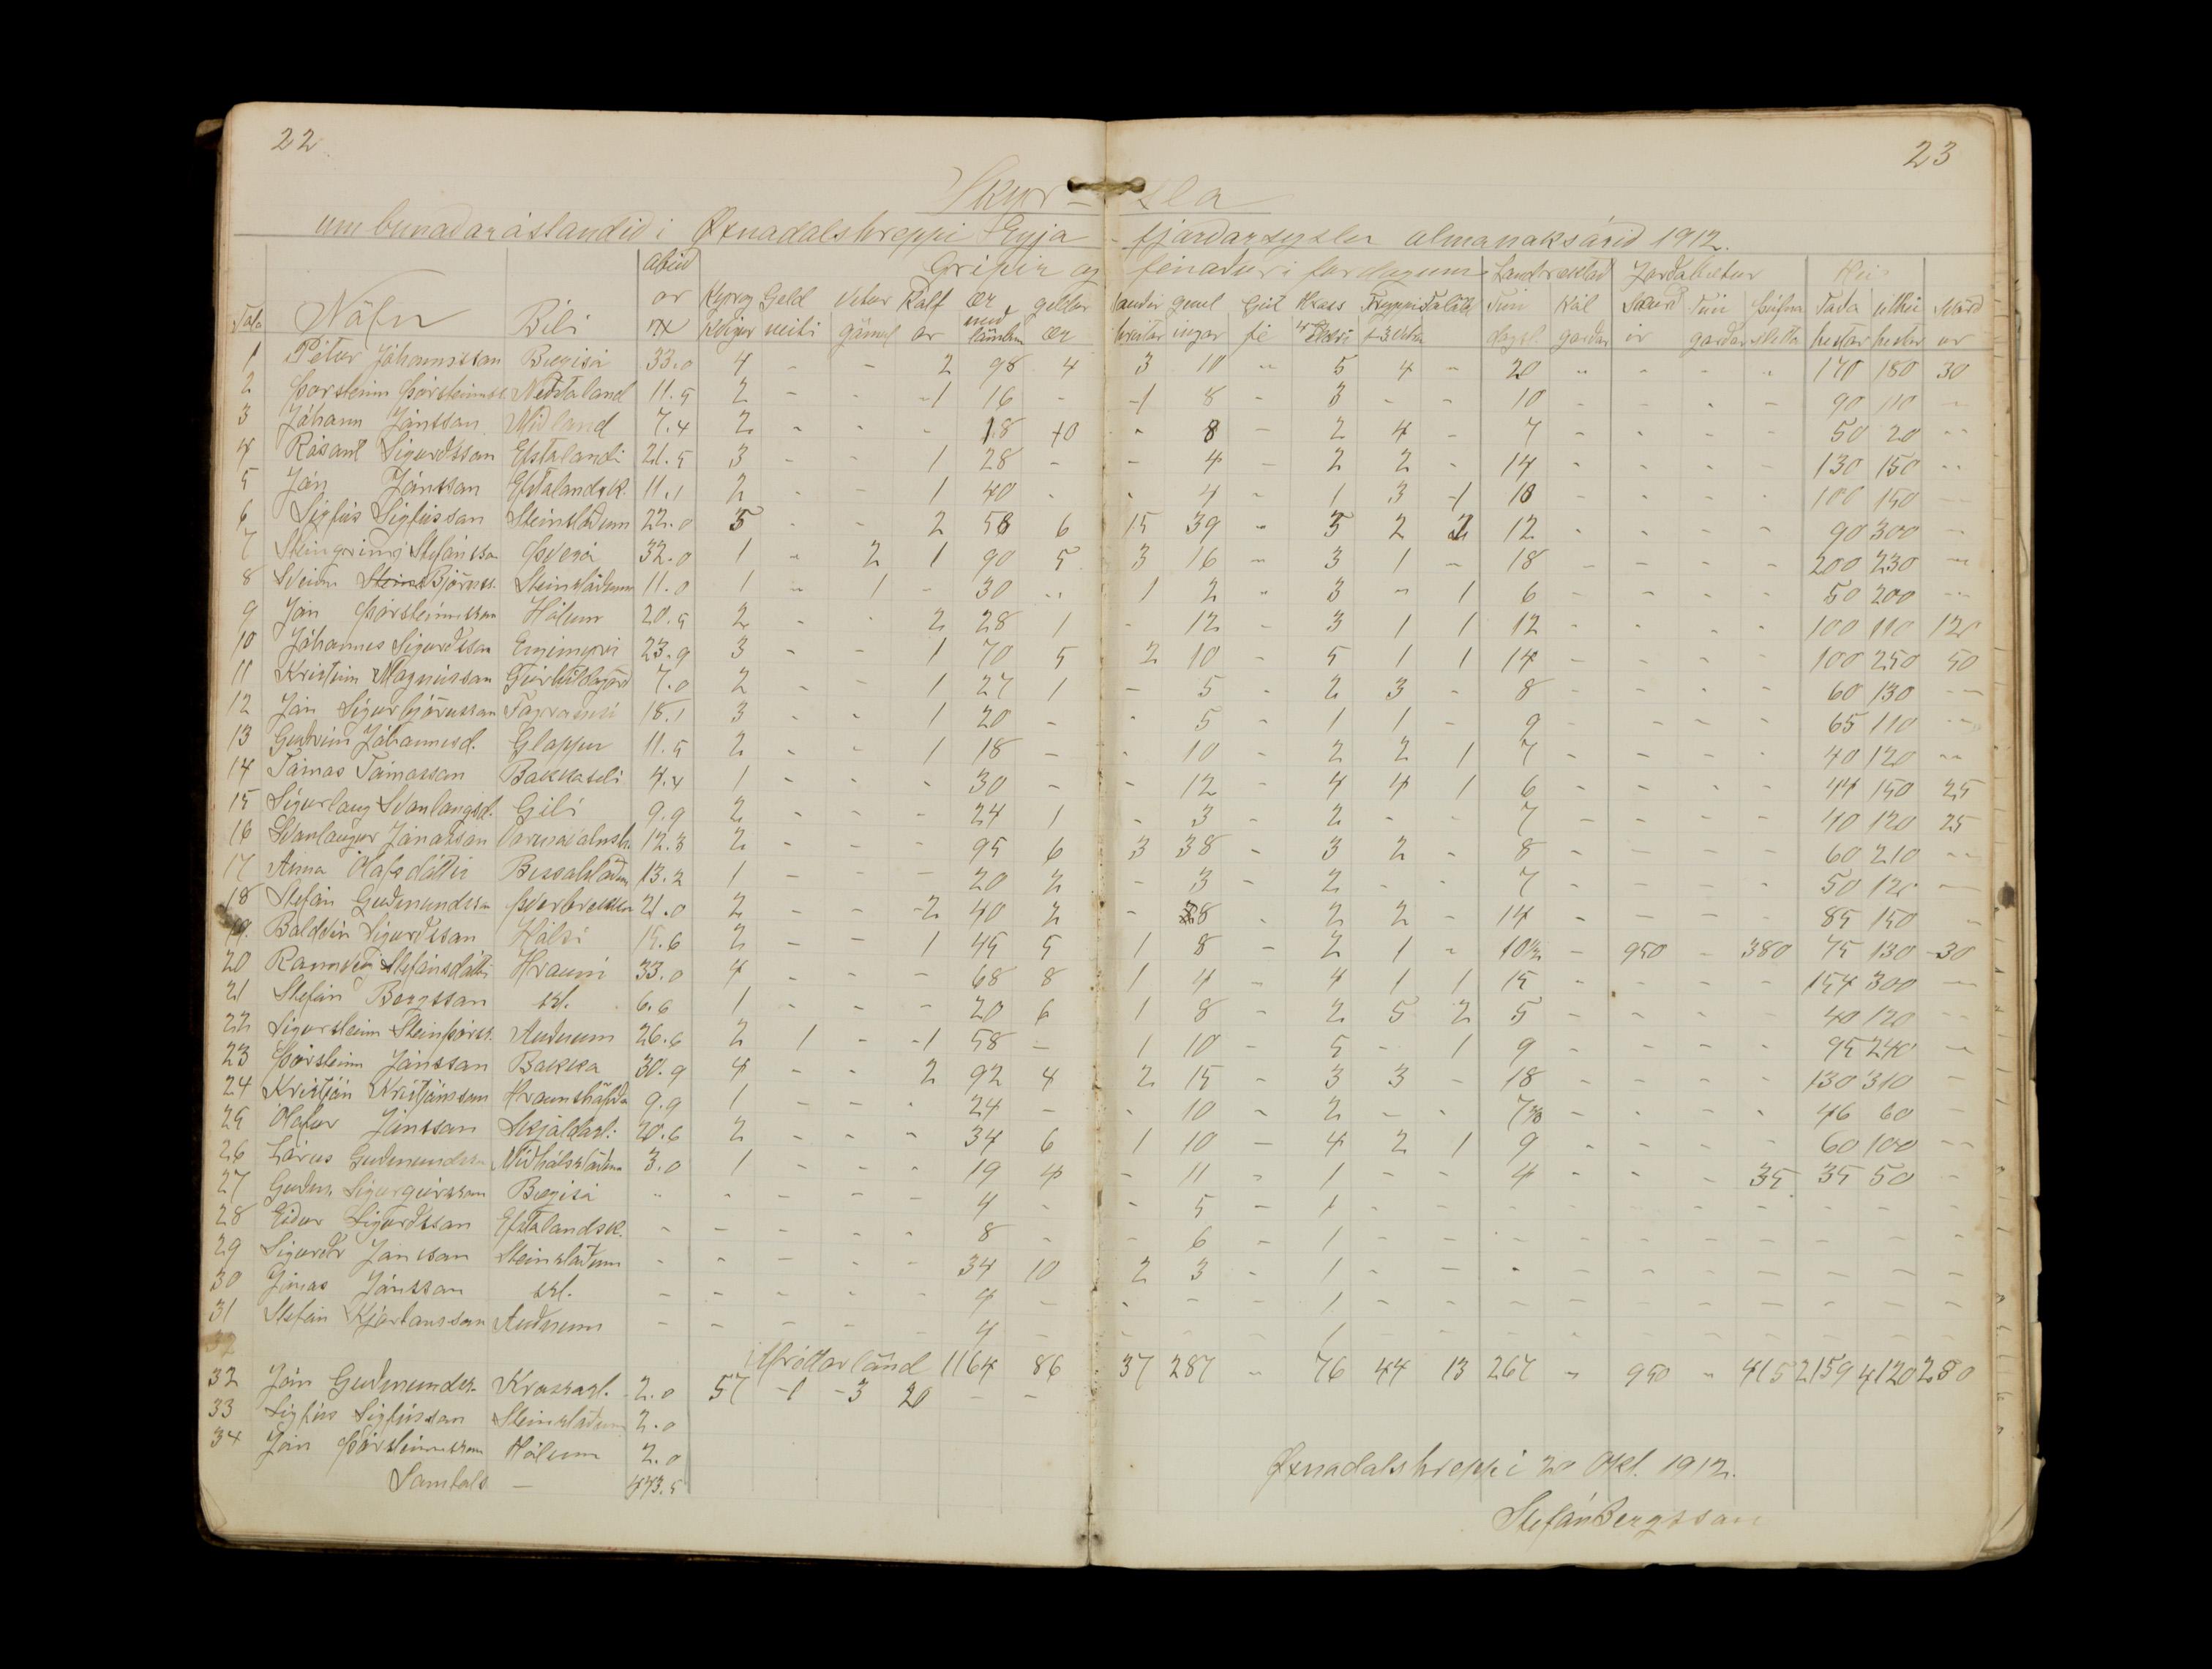 22
23
Skýr- sla
um búnaðarástandið í Øxnadalshreppi Eyja- fjarðarsyslu almanaksárið 1912.
Gripir og fénaður í fardögum Landræktað Jarðabætur Hei
Tala Nöfn Bili Abúð ar Kyrog kvigur Geld neiti Vetur gamal Kalf ar ær með lömbum geldar ær sauðir hrutar geml ingar Geit fé Hross 4 Tún dagsl. Kál garðar Skurð ir Tún garðar Þúfna sletta Taða hestar úthei hestar Mórð ur
1 Pétur Jóhannsson Bægisá 33.0 4 - - 2 98 4 3 10 - 5 4 - 20 - - - - 170 180 30
2 Þorsteinn Þorsteinss. Neðstaland 11.5 2 - - 1 16 - 1 8 - 3 - - 10 - - - - 90 110 -
3 Jóhann Jónsson Miðland 7.4 2 - - - 18 10 - 8 - 2 4 - 7 - - - - 50 20 -
4 Rósant Sigurðsson Efstalandi 21.5 3 - - 1 28 - - 4 - 2 2 - 14 - - - - 130 150 -
5 Jón Jónsson Efstalandsk. 11.1 2 - - 1 40 - - 4 - 1 3 1 10 - - - - 100 150 -
6 Sigfús Sigfússon Steinstöðum 22.0 5 - - 2 58 6 15 39 - 5 2 2 12 - - - - 90 300 -
7 Steingrimr Stefánsson Þverá 32.0 1 - 2 1 90 5 3 16 - 3 1 - 18 - - - - 200 230 -
8 Sveinn Björnss. Steinstöðum 11.0 1 - 1 - 30 - 1 2 - 3 - 1 6 - - - - 50 200 -
9 Jón Þórsteinnsson Hólum 20.5 2 - - 2 28 1 - 12 - 3 1 1 12 - - - - 100 110 120
10 Jóhannes Sigurðsson Engimyri 23.9 3 - - 1 70 5 2 10 - 5 1 1 14 - - - - 100 250 50
11 Kristinn Magnússon Geirhildagörð 7.0 2 - - 1 27 1 - 5 - 2 3 - 8 - - - - 60 130 -
12 Jón Sigurbjörnsson Fagranesi 18.1 3 - - 1 20 - - 5 - 1 1 - 9 - - - - 65 110 -
13 Guðrún Jóhannesd. Gloppu 11.5 2 - - 1 18 - - 10 - 2 2 1 7 - - - - 40 120 -
14 Tómas Tómasson Bakkaseli 4.4 1 - - - 30 - - 12 - 4 4 1 6 - - - - 44 150 25
15 Sigurlaug Svanlaugsd. Gili 9.9 2 - - - 24 1 - 3 - 2 - - 7 - - - - 40 120 25
16 Svanlaugur Jónasson Varmavatnsh. 12.3 2 - - - 95 6 3 38 - 3 2 - 8 - - - - 60 210 -
17 Anna Olafsdóttir Bessahlöðum 13.2 1 - - - 20 2 - 3 - 2 - - 7 - - - - 50 120 -
18 Stefán Guðmundsson Þverbrekku 21.0 2 - - 2 40 2 - 28 - 2 2 - 14 - - - - 85 150 -
19. Baldvin Sigurðsson Hálsi 15.6 2 - - 1 45 5 1 8 - 2 1 - 10½ - 950 - 380 75 130 30
20 Rannveig Stefánsdóttir Hrauni 33.0 4 - - - 68 8 1 4 - 4 1 1 15 - - - - 154 300 -
21 Stefán Bergsson st. 6.6 1 - - - 20 6 1 8 - 2 5 2 5 - - - - 40 120 -
22 Sigursteinn Steinþórss. Auðnum 26.6 2 1 - 1 58 - 1 10 - 5 - 1 9 - - - - 95 240 -
23 Þórsteinn Jónsson Bakka 30.9 4 - - 2 92 4 2 15 - 3 3 - 18 - - - - 130 310 -
24 Kristján Kristjánsson Hraunshöfða 9.9 1 - - - 24 - - 10 - 2 - - - - - - 46 60 -
25 Olafur Jónsson Skjaldarst. 20.6 2 - - - 34 6 1 10 - 4 2 1 9 - - - - 60 100 -
26 Lárus Guðmundss. Miðhálsstöðum 3.0 1 - - - 19 4 - 11 - 1 - - 4 - - - 35 35 50 -
27 Guðm. Sigurgeirsson Bægisá - - - - - 4 - - 5 - 1 - - - - - - - - - -
28 Eiður Sigurðsson Efstalandsk. - - - - - 8 - - 6 - 1 - - - - - - - - - -
29 Sigurðr Jónsson Steinstöðum - - - - - 34 10 2 3 - 1 - - - - - - - - - -
30 Jónas Jónsson st. - - - - - 4 - - - - 1 - - - - - - - - - -
31 Stefán Kjartansson Auðnum - - - - - 4 - - - - 1 - - - - - - - - - -
32 Jón Guðmundss. Krossast. 2.0 57 1 3 20 1164 86 37 287 - 76 44 13 267 - 950 - 415 2159 4120 280
33 Sigfús Sigfússon Steinstöðum 2.0
34 Jón Þórsteinnsson Hólum 2.0
Samtals - 473.5
Øxnadalshreppi 20 Okt. 1912.
Stefán Bergsson